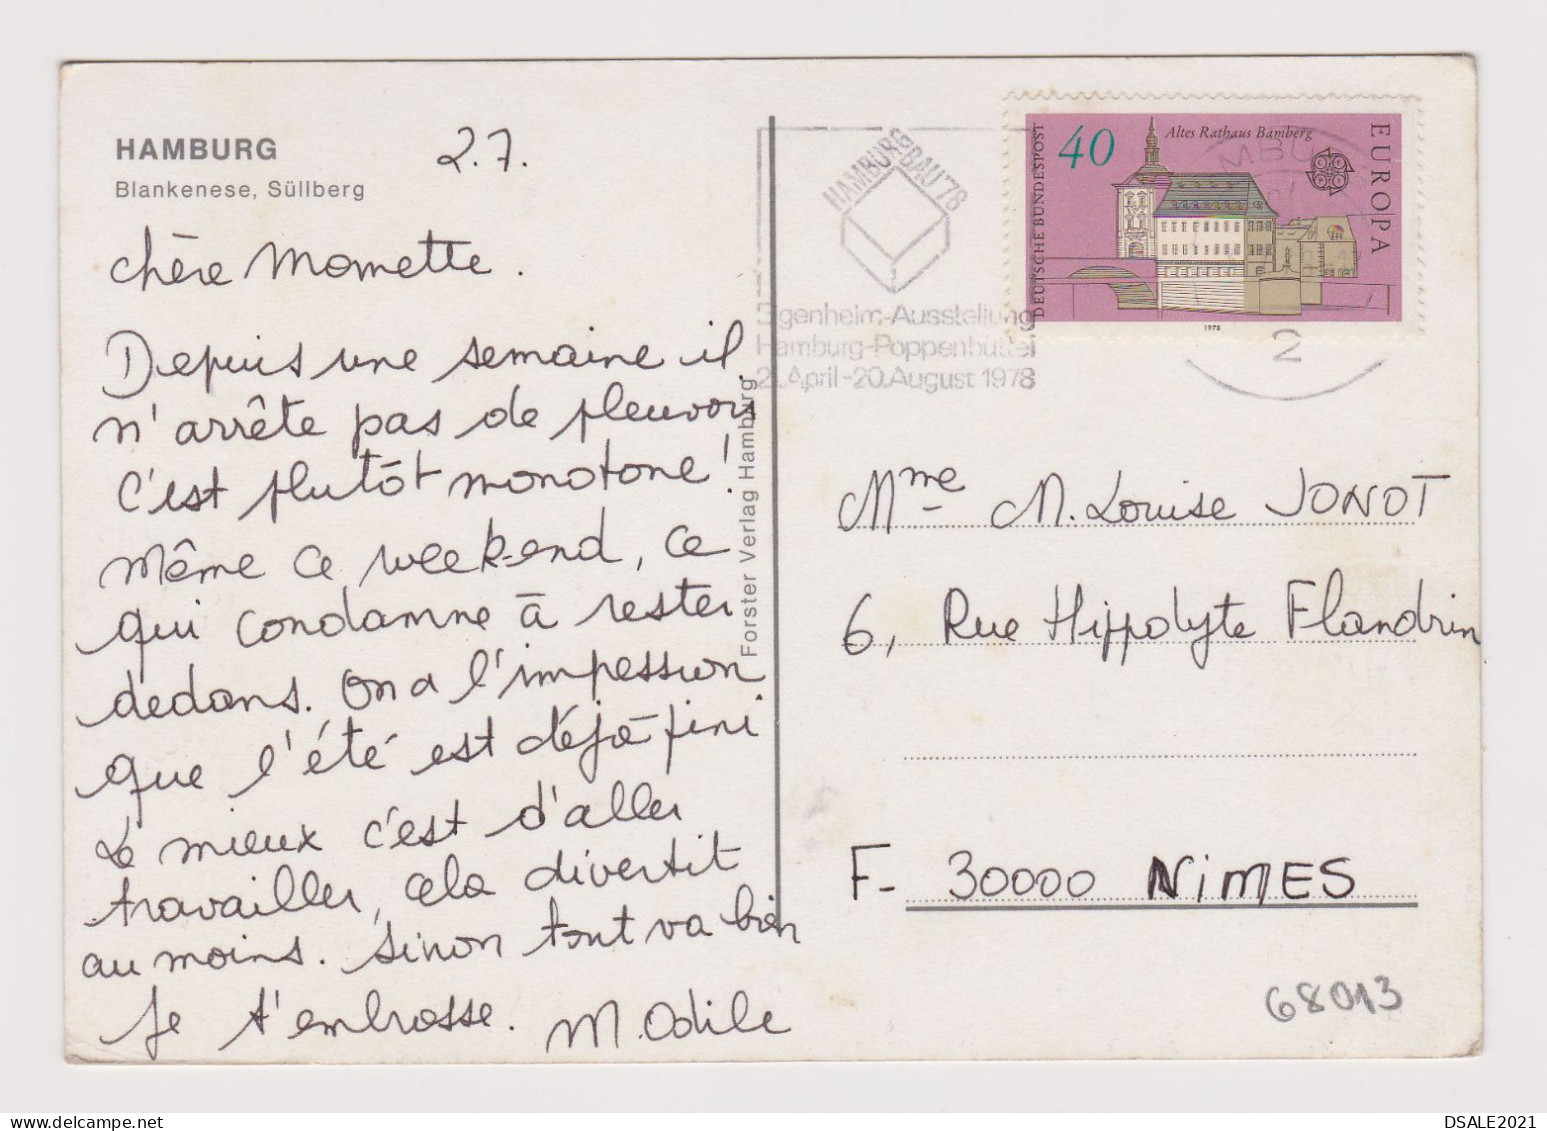 HAMBURG
Blankenese, Süllberg
2.7.
chère Momette.
Depuis une semaine il
n'arrête pas de pleuvoir
C'est plutôt monotone!
même ce week-end, ce
qui condamne à rester
dedans. On a l'impession
que l'été est déjà fini.
Le mieux c'est d'aller
travailler, cela divertit
au moins. Sinon tout va bien
Je t'embrasse. M. Odile
Forster Verlag Hamburg
HAMBURG BAU'78
Eigenheim-Ausstellung
Hamburg-Poppenbüttel
April-20.August 1978
DEUTSCHE BUNDESPOST
40
Altes Rathaus Bamberg
EUROPA
1978
2
Mme M. Louise JONOT
6, Rue Hippolyte Flandrin
F- 30000 NIMES
68013
DSALE2021